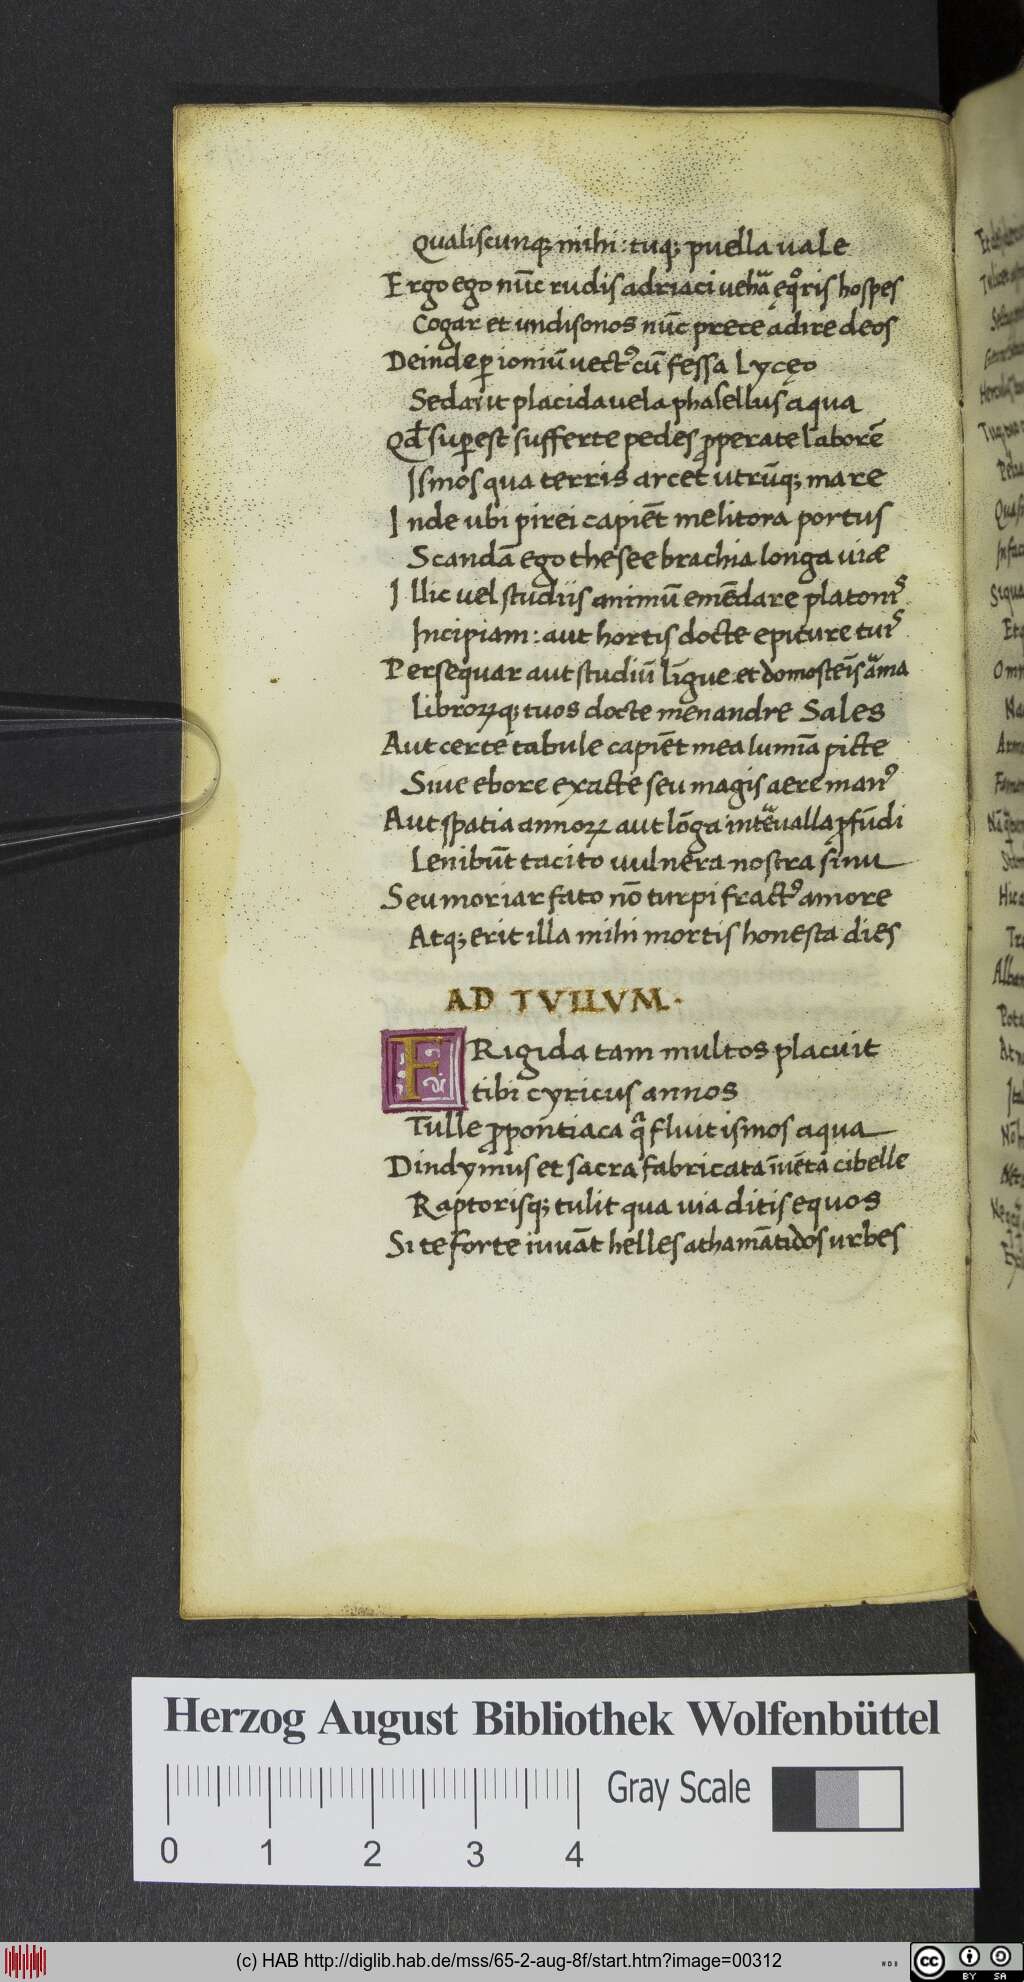 Qualiscunq; mihi: tuq; puella uale
Ergo ego nūc rudis adriaci uehar̄ ęq̊ris hospes
Cogar et undisonos nūc prece adire deos
Deinde ꝑ ioniū uectꝰ cū fessa Lyceo
Sedarit placida uela phasellus aqua
Qd̄ suꝑest sufferte pedes ꝓperate laborē
Ismos qua terris arcet utrūq; mare
Inde ubi pirei capiēt me litora portus
Scandā ego thesee brachia longa uiæ
Illic uel studiis animū emēdare platonis
Incipiam: aut hortis docte epicure tuis
Persequar aut studiū līgue: et domosteīs arma
Libroꝝq; tuos docte menandre Sales
Aut certe tabule capiēt mea lumīa picte
Siue ebore exacte seu magis aere manꝰ
Aut spatia annoꝝ aut lōga interualla ꝓfūdi
Lenibūt tacito uulnera nostra sinu
Seu moriar fato nō turpi fractꝰ amore
Atq; erit illa mihi mortis honesta dies
AD TVLLVM.
FRigida tam multos placuit
tibi cyricus annos
Tulle ꝓpontiaca qͣ fluit ismos aqua
Dindymus et sacra fabricata īuēta cibelle
Raptorisq; tulit qua uia ditis equos
Si te forte iuuāt helles athamātidos urbes
Herzog August Bibliothek Wolfenbüttel
Gray Scale
0 1 2 3 4
(c) HAB http://diglib.hab.de/mss/65-2-aug-8f/start.htm?image=00312
cc BY SA